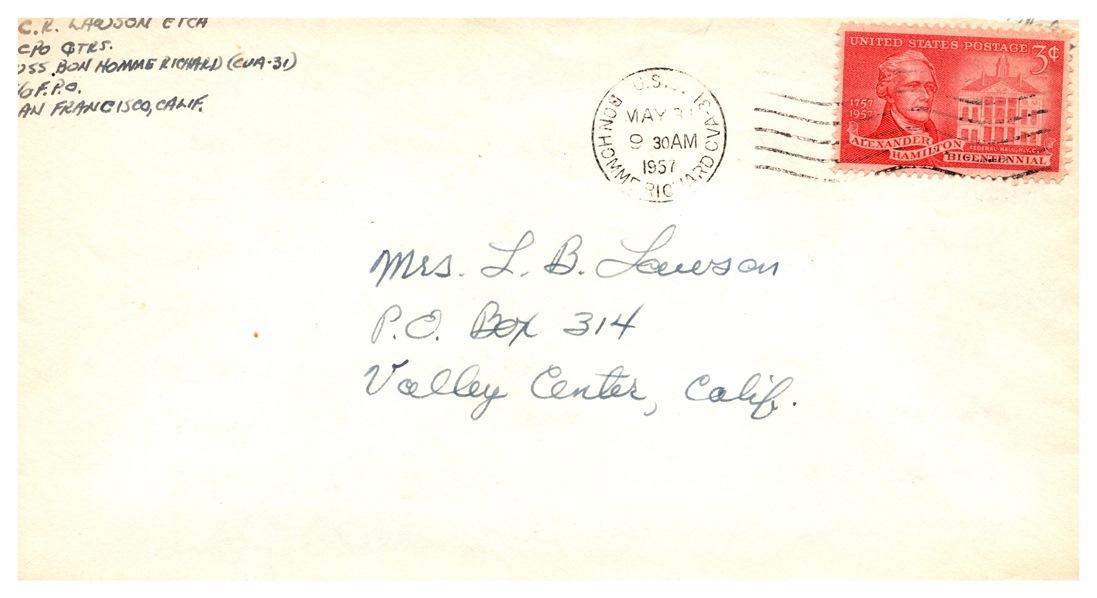 C.R. LAWSON ETCA
CPO QTRS.
USS BON HOMME RICHARD (CVA-31)
% F.P.O.
AN FRANCISCO, CALIF.
U.S.S.
BON HOMME RICHARD CVA-31
MAY 31
9 30 AM
1957
UNITED STATES POSTAGE 3¢
1757
1957
ALEXANDER
HAMILTON
BICENTENNIAL
FEDERAL HALL, N.Y.C.
Mrs. L. B. Lawson
P.O. Box 314
Valley Center, Calif.